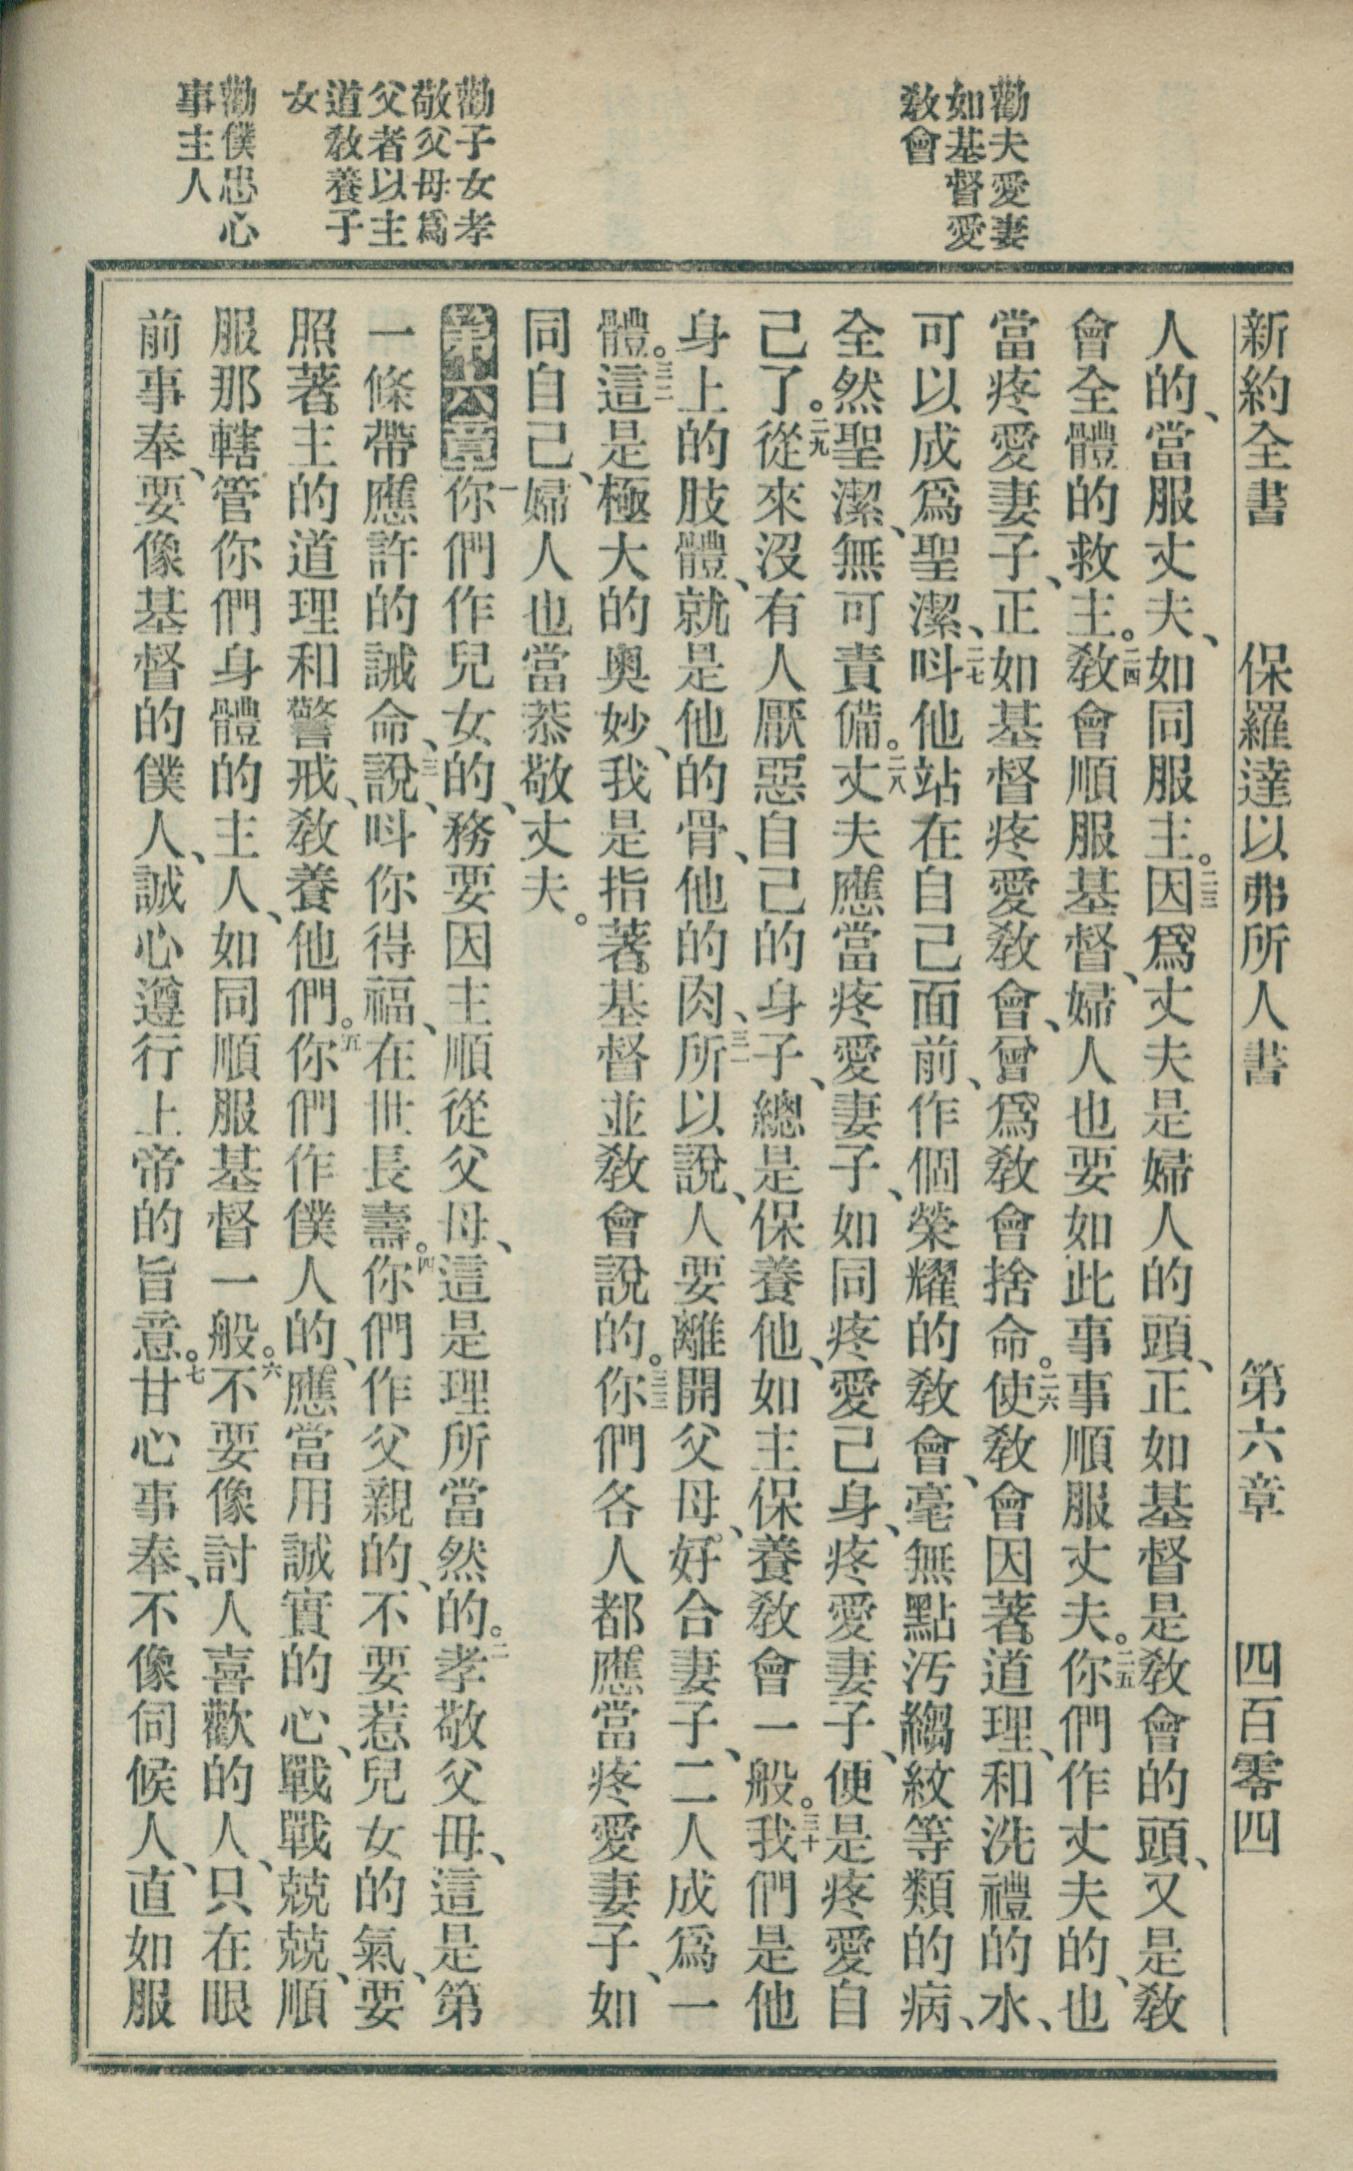 新約全書　保羅達以弗所人書　第六章　四百零四
勸夫愛妻
如基督愛
敎會
勸子女孝
敬父母爲
父者以主
道敎養子
女
勸僕忠心
事主人
人的、當服丈夫、如同服主。二三因爲丈夫是婦人的頭、正如基督是敎會的頭、又是敎
會全體的救主。二四敎會順服基督、婦人也要如此事事順服丈夫。二五你們作丈夫的、也
當疼愛妻子、正如基督疼愛敎會、曾爲敎會捨命。二六使敎會因著道理、和洗禮的水、
可以成爲聖潔、二七呌他站在自己面前、作個榮耀的敎會、毫無點汚縐紋等類的病、
全然聖潔、無可責備。二八丈夫應當疼愛妻子、如同疼愛己身、疼愛妻子、便是疼愛自
己了。二九從來沒有人厭惡自己的身子、總是保養他、如主保養敎會一般。三十我們是他
身上的肢體、就是他的骨、他的肉、三一所以說、人要離開父母、好合妻子、二人成爲一
體。三二這是極大的奧妙、我是指著基督並敎會說的。三三你們各人都應當疼愛妻子、如
同自己、婦人也當恭敬丈夫。
第六章一你們作兒女的、務要因主順從父母、這是理所當然的。二孝敬父母、這是第
一條帶應許的誡命、三說、呌你得福、在世長壽。四你們作父親的、不要惹兒女的氣、要
照著主的道理和警戒、敎養他們。五你們作僕人的、應當用誠實的心、戰戰兢兢、順
服那轄管你們身體的主人、如同順服基督一般。六不要像討人喜歡的人、只在眼
前事奉、要像基督的僕人、誠心遵行上帝的旨意。七甘心事奉、不像伺候人、直如服